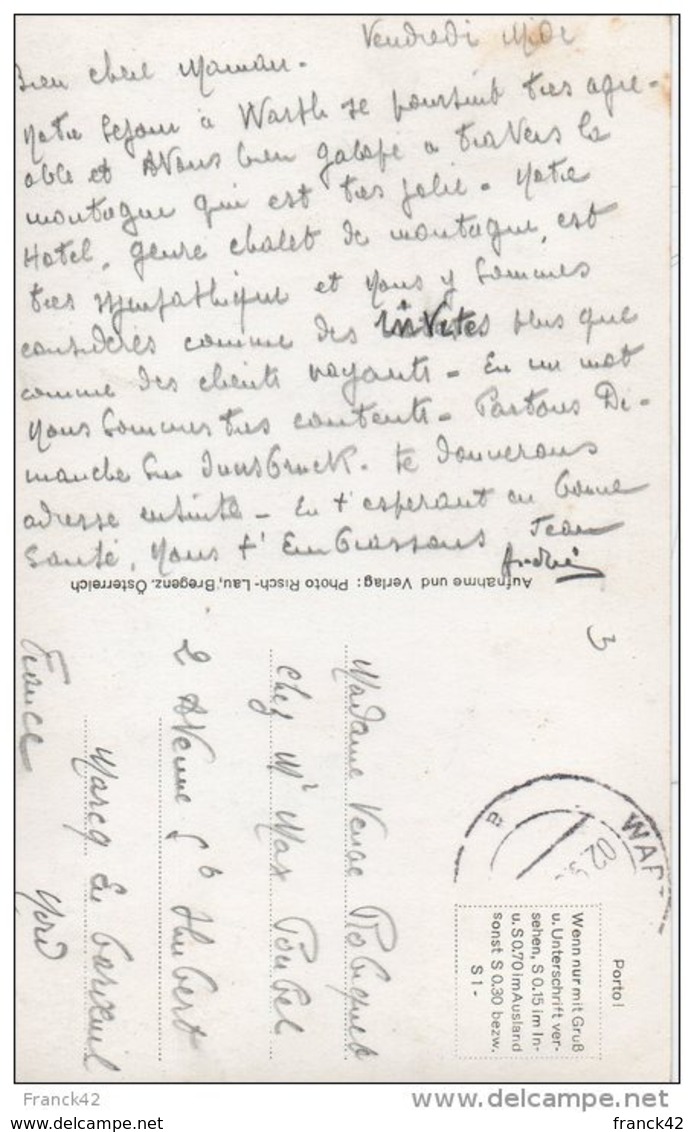 Vendredi Midi
Bien chere Maman.
Notre Sejour à Warth se poursuit tres agre-
able et Avons bien galopé a travers la
montagne qui est tres jolie. Notre
Hotel, genre chalet de montagne, est
tres sympathique et nous y sommes
considérés comme des invites plus que
comme des clients payants. En un mot
nous sommes tres contents. Partons Di-
manche sur Innsbruck. te donnerons
adresse ensuite. En t'esperant en bonne
Santé, nous t'Embrassons Jean
Andrée
Aufnahme und Verlag: Photo Risch-Lau, Bregenz, Österreich
3
Madame Veuve
chez Mr Max
2 Avenue St Hubert
Marcq En Baroeul
Nord
France
WAR
Porto!
Wenn nur mit Gruß
u. Unterschrift ver-
sehen, S 0.15 im In-
u. S 0.70 im Ausland
sonst S 0.30 bezw.
S 1-
Franck42
delcampe.net
franck42
franck42